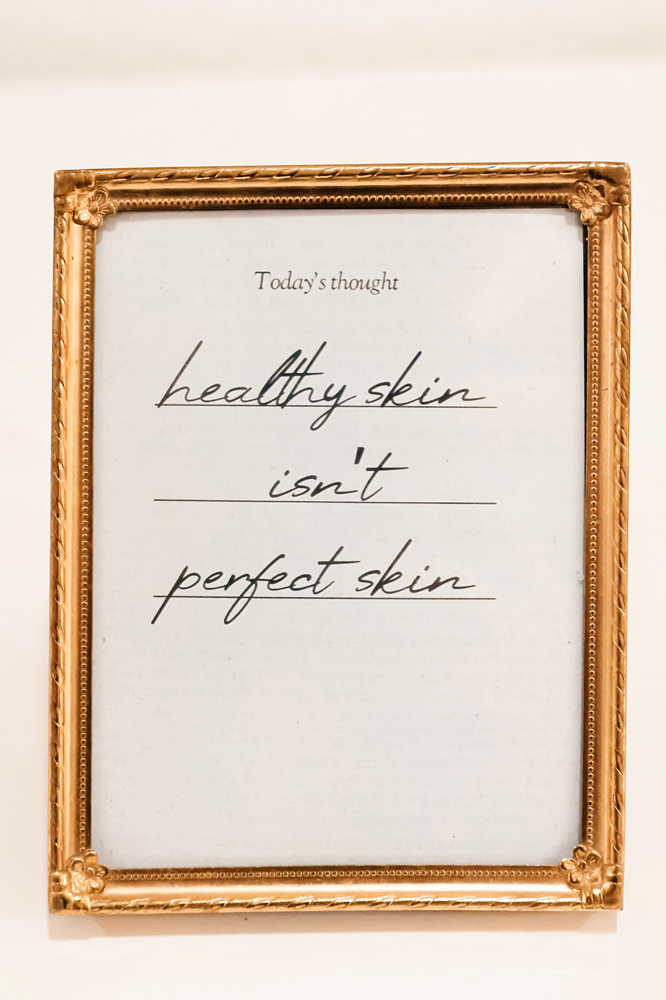 Today's thought
healthy skin
isn't
perfect skin